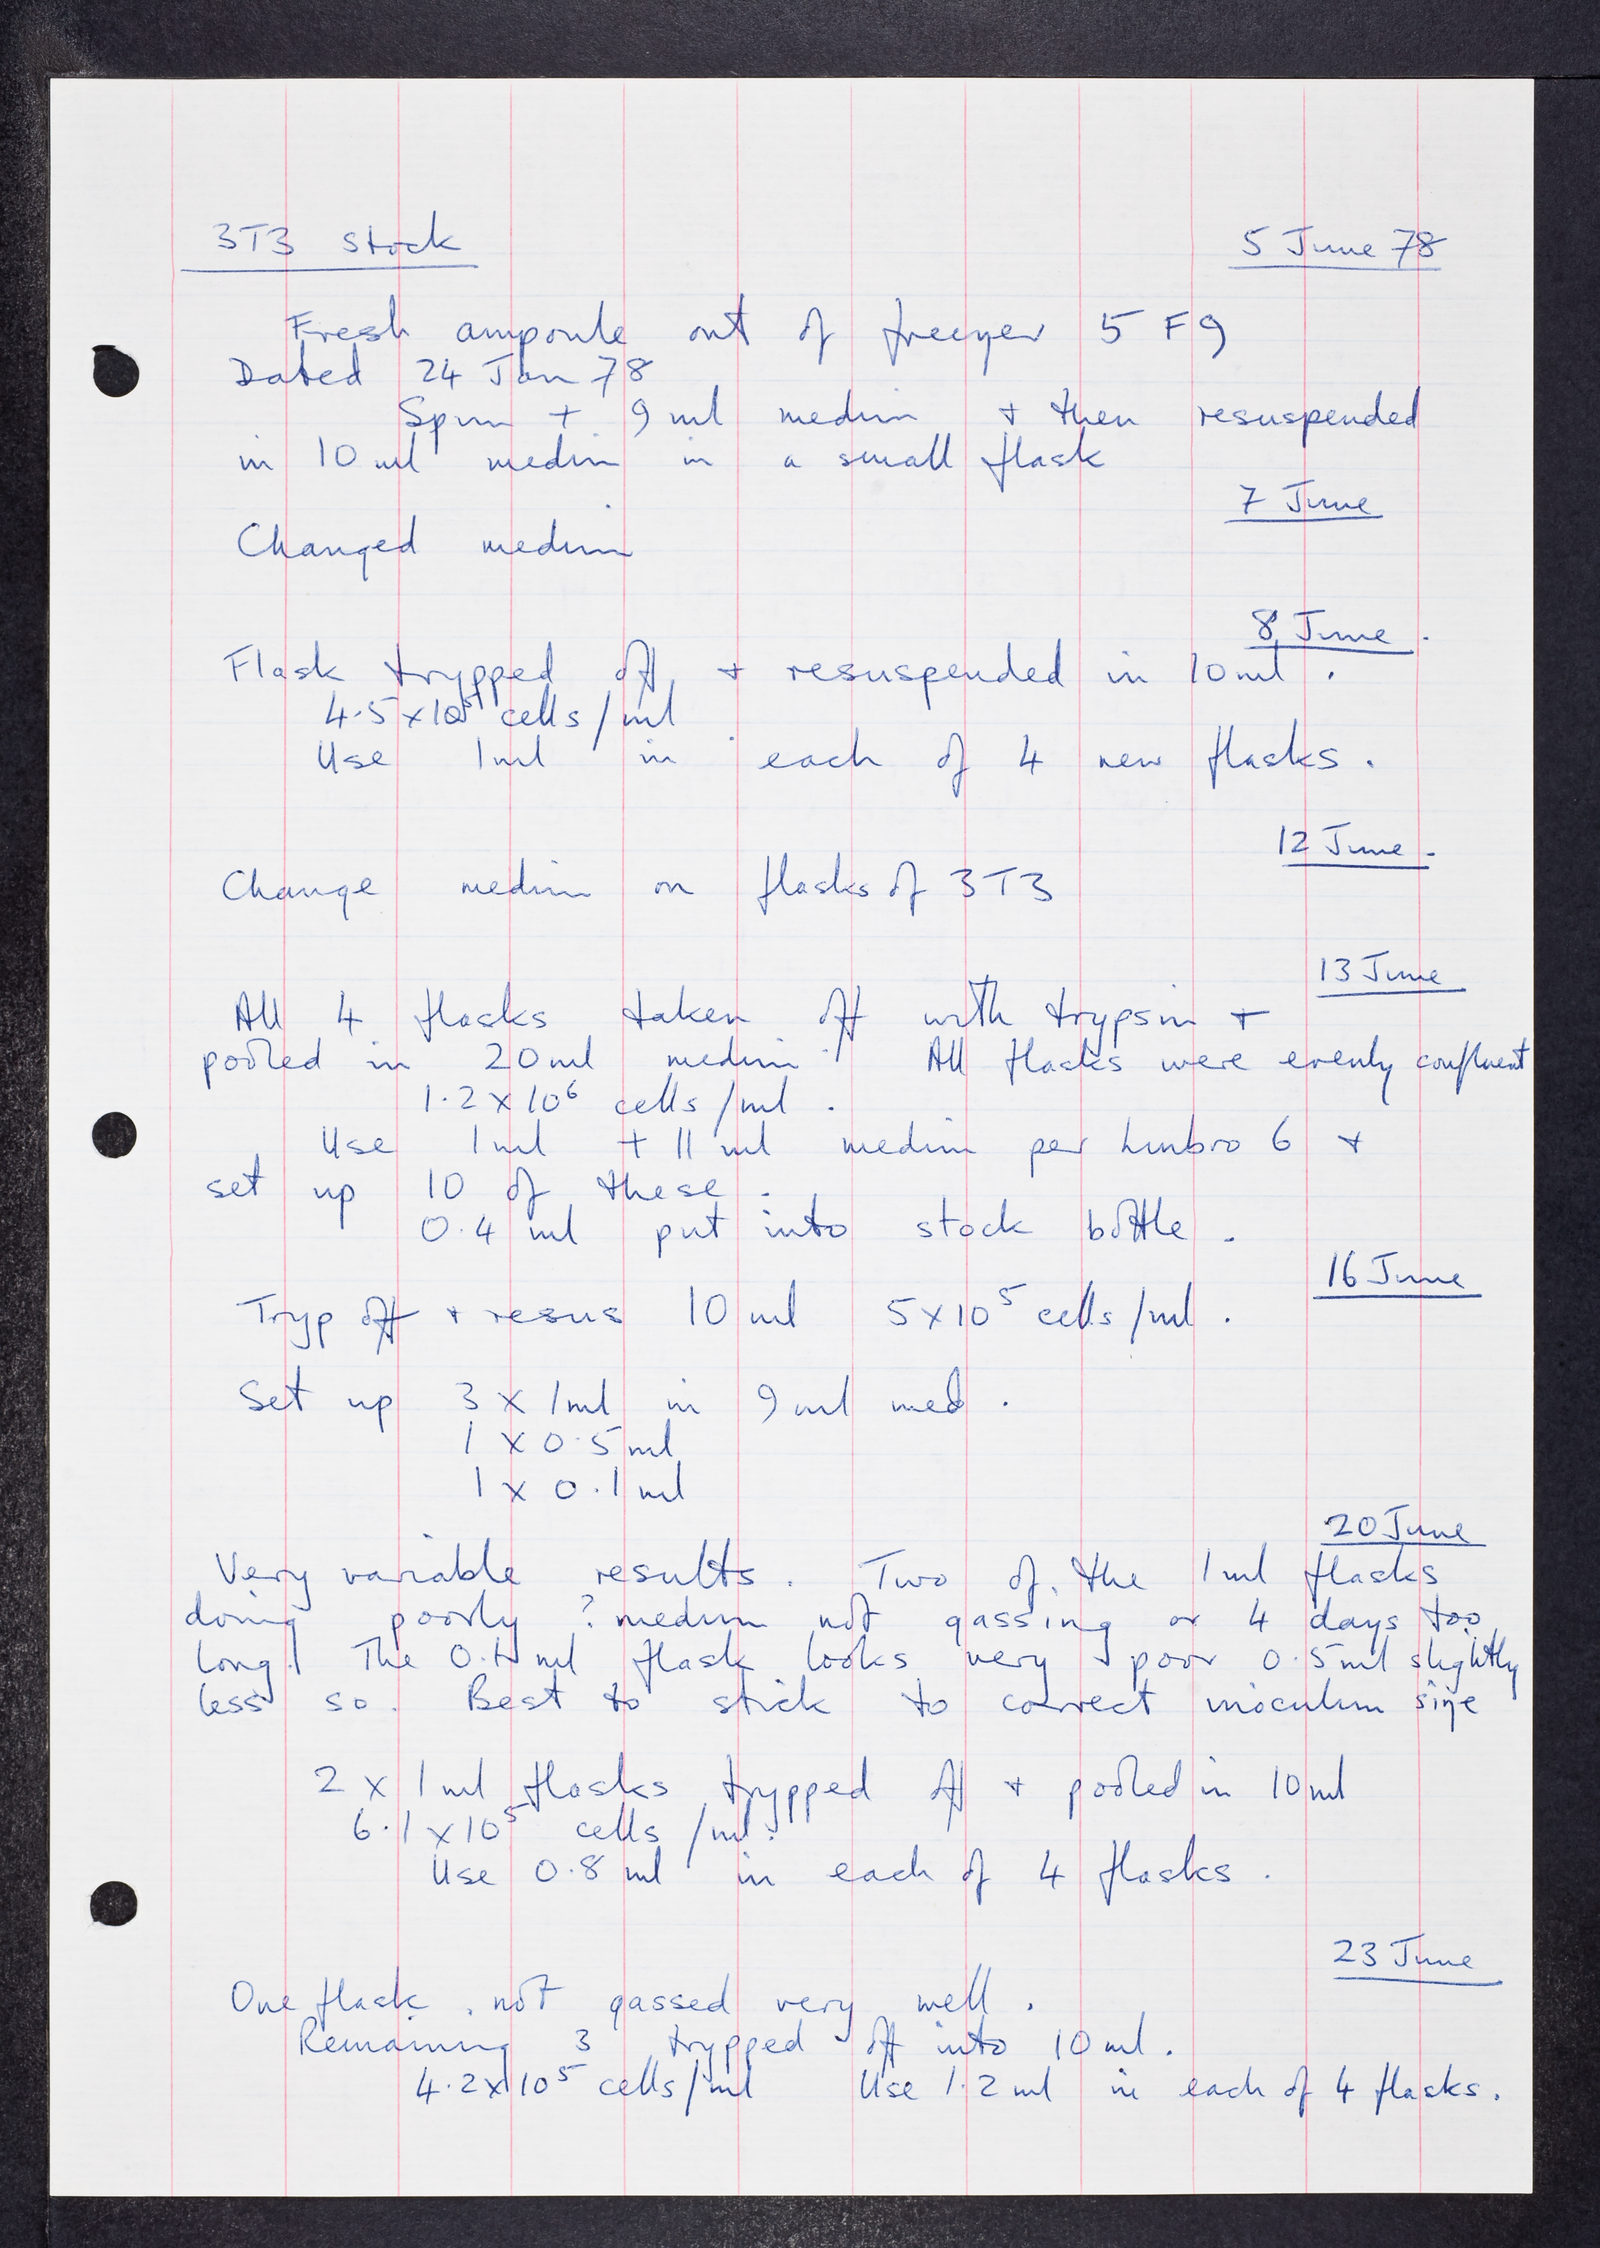 3T3 stock
5 June 78
Fresh ampoule out of freezer 5 F9
Dated 24 Jan 78
Spun + 9 ml medium + then resuspended
in 10 ml medium in a small flask
7 June
Changed medium
8 June.
Flask trypped off + resuspended in 10 ml.
4.5 x 10⁵ cells/ml
Use 1ml in each of 4 new flasks.
12 June.
Change medium on flasks of 3T3
13 June
All 4 flasks taken off with trypsin +
pooled in 20ml medium. All flasks were evenly confluent
1.2 x 10⁶ cells/ml.
Use 1ml + 11 ml medium per Linbro 6 +
set up 10 of these.
0.4 ml put into stock bottle.
16 June
Tryp off + resus 10 ml 5 x 10⁵ cells/ml.
Set up 3 x 1ml in 9 ml med.
1 x 0.5 ml
1 x 0.1 ml
20 June
Very variable results. Two of the 1 ml flasks
doing poorly ? medium not gassing or 4 days too
long. The 0.1 ml flask looks very poor 0.5 ml slightly
less so. Best to stick to correct inoculum size
2 x 1 ml flasks trypped off + pooled in 10 ml
6.1 x 10⁵ cells/ml.
Use 0.8 ml in each of 4 flasks.
23 June
One flask not gassed very well.
Remaining 3 trypped off into 10 ml.
4.2 x 10⁵ cells/ml Use 1.2 ml in each of 4 flasks.